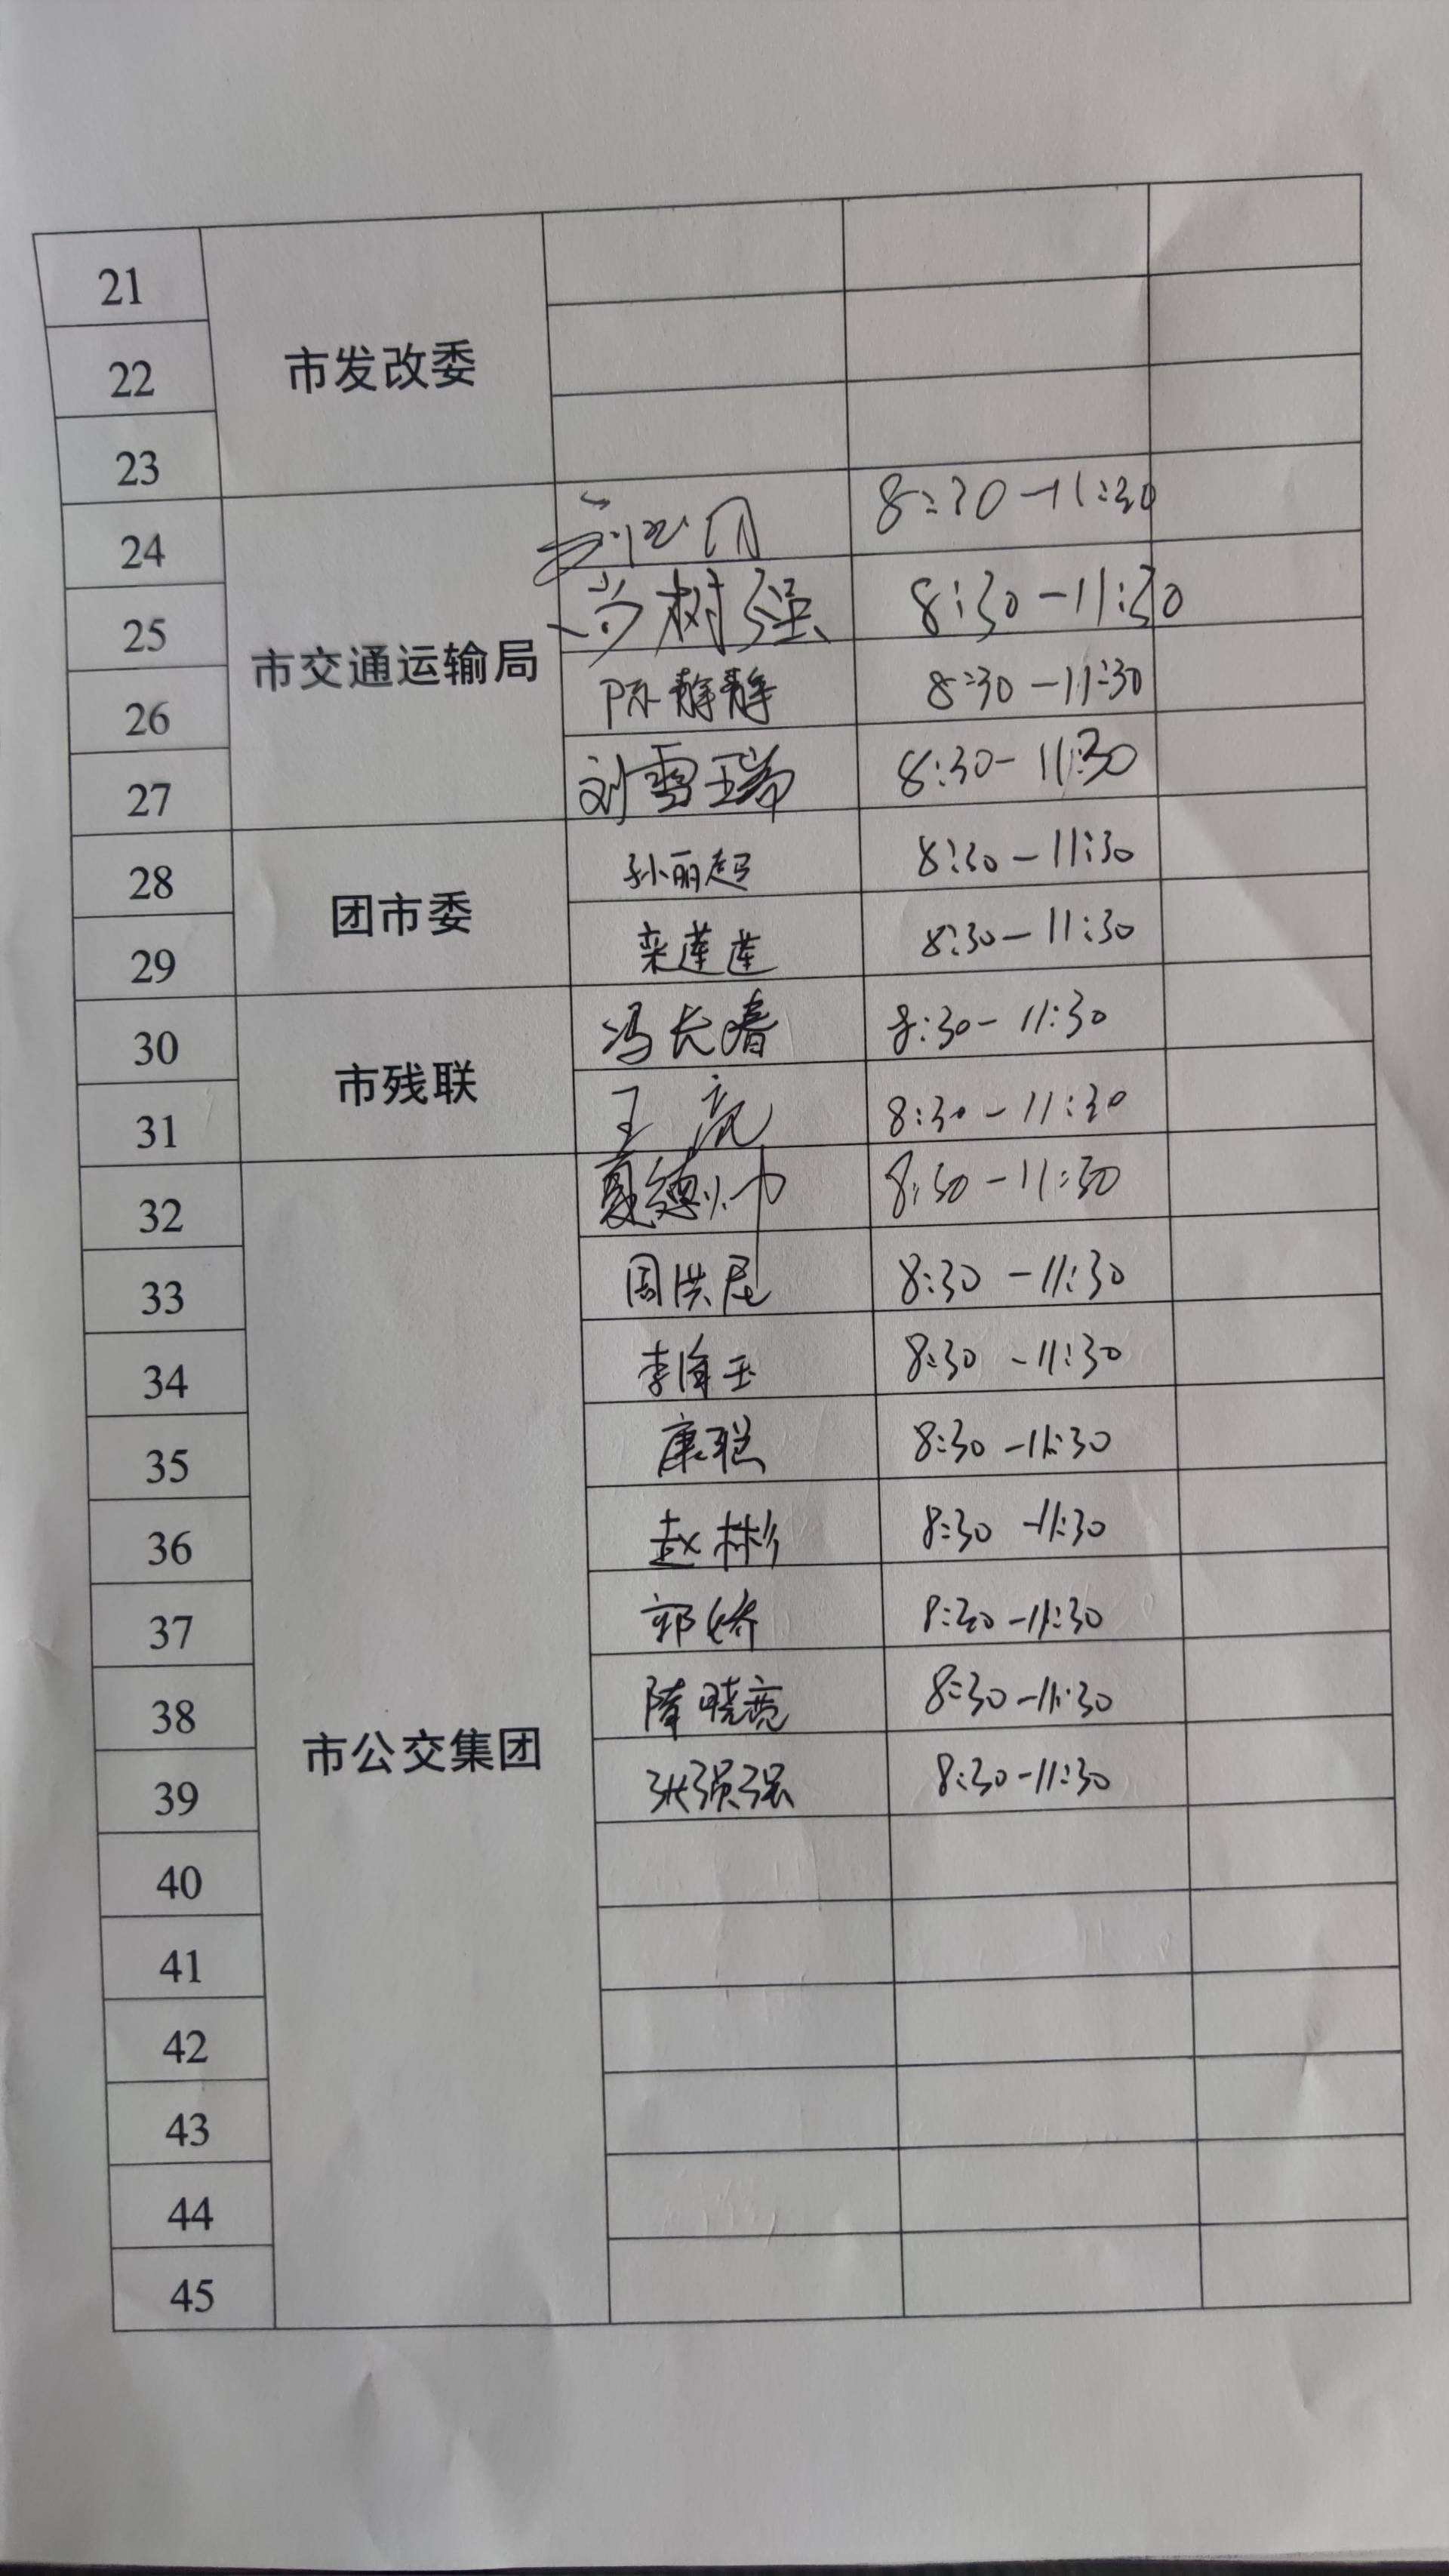 21
22 市发改委
23
24 8:30-11:30
25 尚树强 8:30-11:30
市交通运输局
26 陈静静 8:30-11:30
27 刘雪瑞 8:30-11:30
28 孙丽超 8:30-11:30
团市委
29 栾莲莲 8:30-11:30
30 冯长春 8:30-11:30
市残联
31 王亮 8:30-11:30
32 夏德帅 8:30-11:30
33 周洪 8:30-11:30
34 李 玉 8:30-11:30
35 康聪 8:30-11:30
36 赵彬 8:30-11:30
37 郭娇 8:30-11:30
38 隋晓亮 8:30-11:30
市公交集团
39 张强强 8:30-11:30
40
41
42
43
44
45